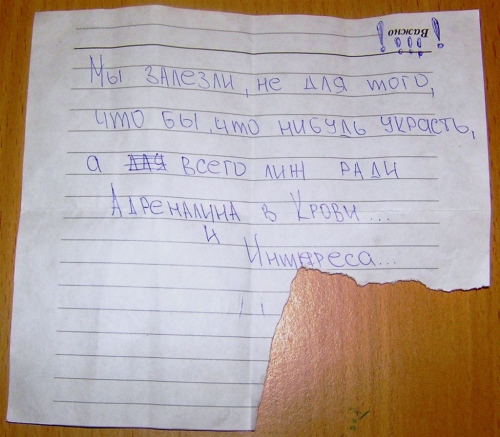 Важно
Мы залезли, не для того,
что бы, что нибудь украсть,
а для всего лиж ради
Адреналина в Крови...
и
Интереса...